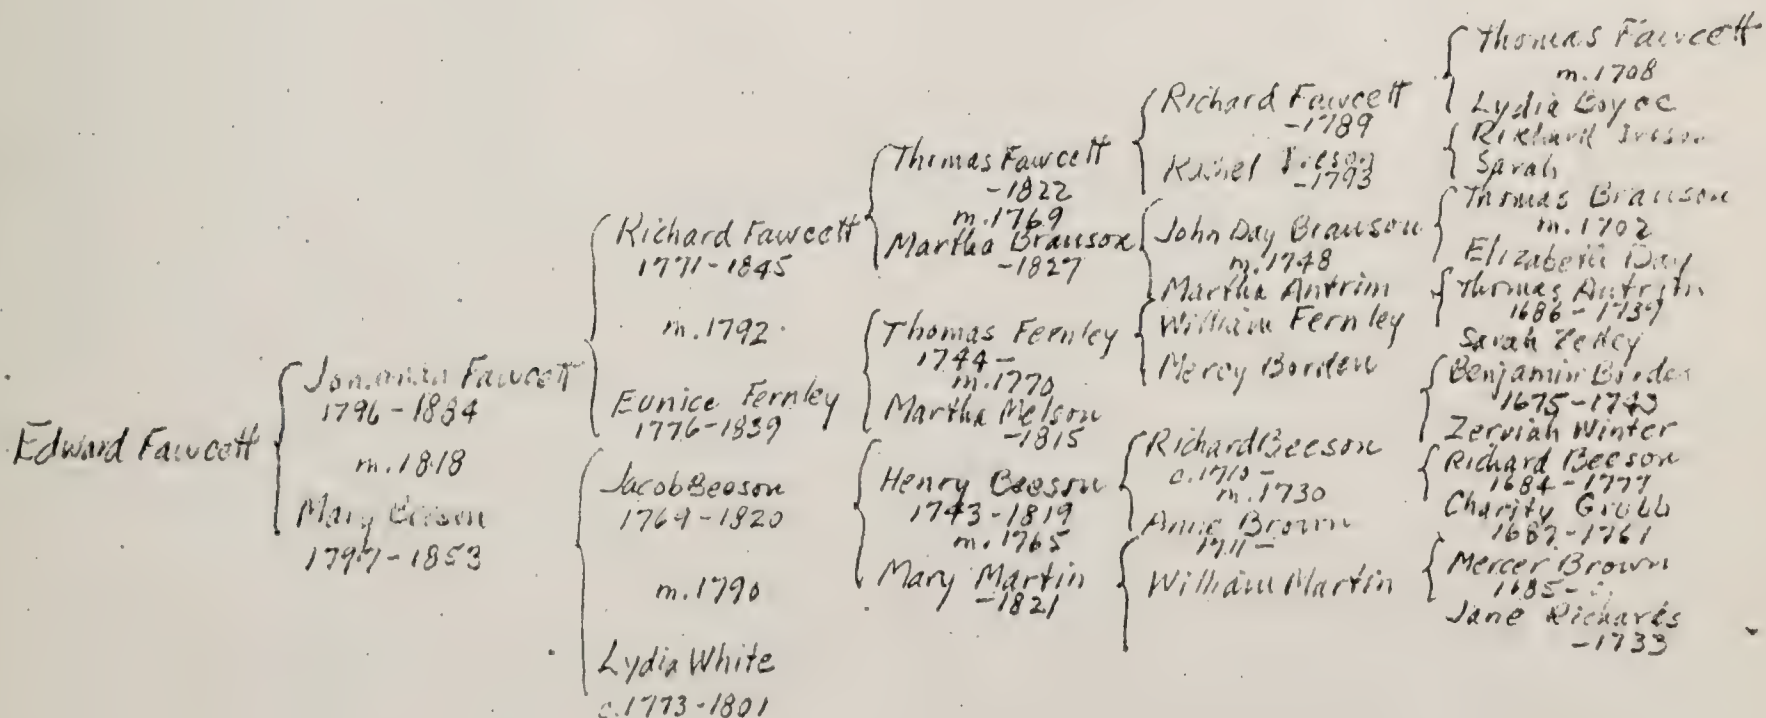 Edward Fawcett
Fawcett
1796-1884
m.1818
Mary Beeson
1797-1853
Richard Fawcett
1771-1845
m.1792
Eunice Fernley
1776-1839
Jacob Beeson
1769-1820
m.1790
Lydia White
c.1773-1801
Thomas Fawcett
-1822
m.1769
Martha Branson
-1827
Thomas Fernley
1744-
m.1770
Martha Melson
-1815
Henry Beeson
1743-1819
m.1765
Mary Martin
-1821
Richard Fawcett
-1789
-1793
John Day Branson
m.1748
Martha Antrim
William Fernley
Mercy Borden
Richard Beeson
c.1710-
m.1730
Anne Brown
1711-
William Martin
Thomas Fawcett
m.1708
Lydia
Richard
Sarah
Thomas Branson
m.1702
Elizabeth Day
Thomas Antrim
1686-
Sarah
Benjamin Borden
1675-1743
Zerviah Winter
Richard Beeson
1684-1777
Charity Grubb
1687-1761
Mercer Brown
1685-
Jane Richards
-1733